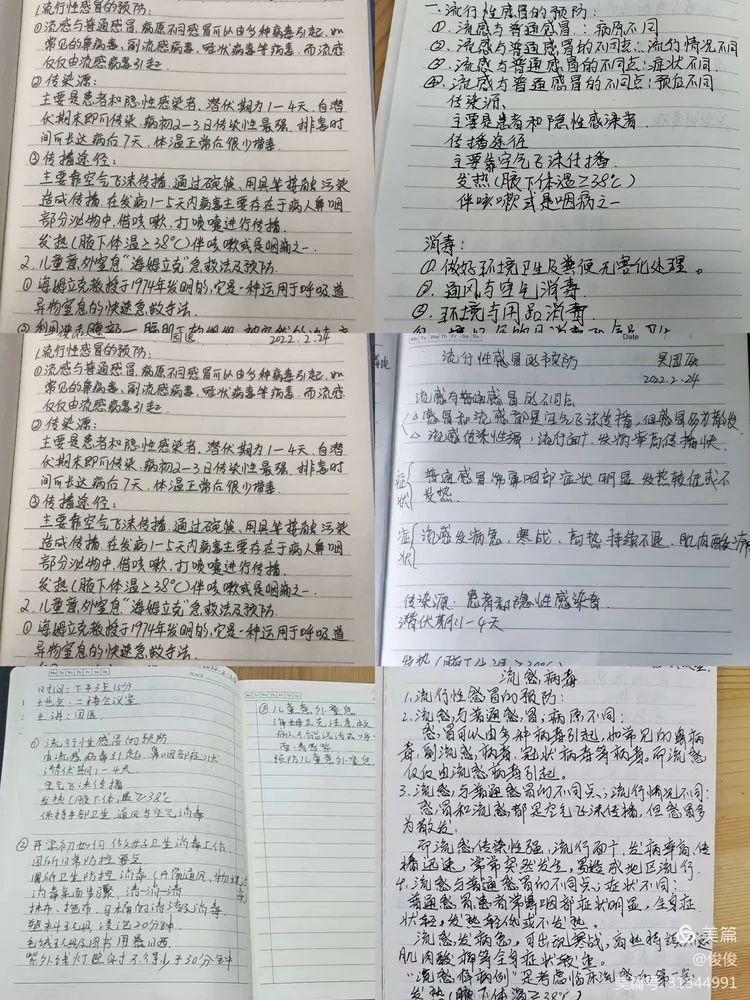 1.流行性感冒的预防:
①流感与普通感冒,病原不同感冒可以由多种病毒引起,如
常见的鼻病毒、副流感病毒、冠状病毒等病毒,而流感
仅仅由流感病毒引起.
②传染源:
主要是患者和隐性感染者,潜伏期为1-4天,自潜
伏期末即可传染,病初2-3日传染性最强,排毒时
间可长达病后7天,体温正常后很少排毒.
③传播途径:
主要靠空气飞沫传播,通过碗筷、用具等接触污染
造成传播,在发病1-5天内病毒主要存在于病人鼻咽
部分泌物中,借咳嗽、打喷嚏进行传播.
发热(腋下体温≥38℃)伴咳嗽或是咽痛之一.
2.儿童意外窒息“海姆立克”急救法及预防.
①海姆立克教授于1974年发明的,它是一种运用于呼吸道
异物窒息的快速急救手法.
一.流行性感冒的预防:
①.流感与普通感冒:病原不同
②.流感与普通感冒的不同点:流行情况不同
③.流感与普通感冒的不同点:症状不同.
④.流感与普通感冒的不同点:预后不同
传染源、
主要是患者和隐性感染者.
传播途径
主要靠空气飞沫传播.
发热(腋下体温≥38℃)
伴咳嗽或是咽痛之一
消毒:
①做好环境卫生及粪便无害化处理。
②.通风与空气消毒
③.环境与用品消毒
园医 2022.2.24
1.流行性感冒的预防:
①流感与普通感冒,病原不同感冒可以由多种病毒引起,如
常见的鼻病毒、副流感病毒、冠状病毒等病毒,而流感
仅仅由流感病毒引起.
②传染源:
主要是患者和隐性感染者,潜伏期为1-4天,自潜
伏期末即可传染,病初2-3日传染性最强,排毒时
间可长达病后7天,体温正常后很少排毒.
③传播途径:
主要靠空气飞沫传播,通过碗筷、用具等接触污染
造成传播,在发病1-5天内病毒主要存在于病人鼻咽
部分泌物中,借咳嗽、打喷嚏进行传播.
发热(腋下体温≥38℃)伴咳嗽或是咽痛之一.
2.儿童意外窒息“海姆立克”急救法及预防.
①海姆立克教授于1974年发明的,它是一种运用于呼吸道
异物窒息的快速急救手法.
Mo Tu We Th Fr Sa Su
Date
流行性感冒的预防
2022.2.24
流感与普通感冒的不同点
感冒和流感都是空气飞沫传播,但感冒多为散发
流感传染性强,流行面广,发病率高传播快.
症状 普通感冒常鼻咽部症状明显 发热较低或不
发热.
症状 流感发病急,寒战、高热持续不退,肌肉酸痛
传染源:患者和隐性感染者.
潜伏期1-4天
时间:下午3点15分
地点:二楼会议室
主讲:园医
①流行性感冒的预防
由流感病毒引起 鼻咽部症状
潜伏期1-4天
空气飞沫传播
发热(腋下体温≥38℃
保持手部卫生 通风与空气消毒
②开学初如何做好卫生消毒工作
园所日常防控要点
消毒桌面步骤 清-消-清
塑料玩具 浸泡20分钟
毛绒玩具及图书 用暴日晒
紫外线灯照射不得少于30分钟
③儿童意外窒息
预防儿童意外窒息
流感病毒
1.流行性感冒的预防:
2.流感与普通感冒,病原不同:
感冒可以由多种病毒引起,如常见的鼻病
毒,副流感,病毒,冠状病毒等病毒。而流感
仅仅由流感病毒引起。
3.流感与普通感冒的不同点:流行情况不同:
感冒和流感都是空气飞沫传播,但感冒多
为散发.
而流感传染性强,流行面广,发病率高,传
播迅速,常常突然发生,易造成地区流行.
4.流感与普通感冒的不同点:症状不同:
普通感冒患者常鼻咽部症状明显,全身症
状轻,发热较低或不发热.
流感发病急,可出现寒战,高热持续不退
肌肉酸痛等全身症状较重.
发热(腋下体温≥38℃)
美篇
@俊俊
美篇号:31544991